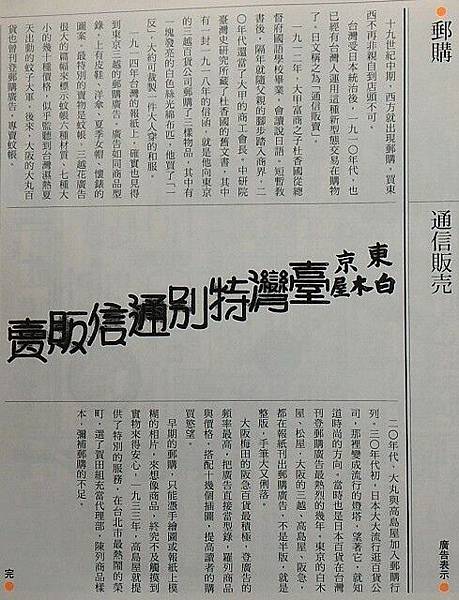 郵購
通信販売
廣告表示
十九世紀中期，西方就出現郵購，買東
西不再非親自到店頭不可。
台灣受日本統治後，一九一〇年代，也
已經有台灣人運用這種新型態交易在購物
了。日文稱之為「通信販賣」。
一九一二年，大甲富商之子杜香國從總
督府國語學校畢業，會講說日語，短暫教
書後，隔年就隨父親的腳步踏入商界，二
〇年代還當了大甲的商工會長。中研院
臺灣史研究所藏了杜香國的舊文書，其中
有一封一九一八年的信函，就是他向東京
的三越百貨公司郵購了三樣物品，其中有
一塊發亮的白色絲光綿布疋，他買了「一
反」，大約可裁製一件大人穿的和服。
一九一四年台灣的報紙上，確實也見得
到東京三越的郵購廣告。廣告如同商品型
錄，上有皮鞋、洋傘、夏季女帽、懷錶的
圖案。最特別的賣物是蚊帳，三越花廣告
很大的篇幅來標示蚊帳六種材質、七種大
小的幾十種價格，似乎監聽到台灣濕熱夏
天出動的蚊子大軍。後來，大阪的大丸百
貨也曾刊登郵購廣告，專賣蚊帳。
東京
白木屋
臺灣特別通信販賣
二〇年代，大丸與高島屋加入郵購行
列。三〇年代初，日本大大流行逛百貨公
司，那裡變成流行的燈塔，望著它，就知
道時尚的方向。當時也是日本百貨在台灣
刊登郵購廣告最熱烈的幾年，東京的白木
屋、松屋，大阪的三越、高島屋、阪急，
都在報紙刊出郵購廣告，不是半版，就是
整版，手筆大又俐落。
大阪梅田的阪急百貨最積極，登廣告的
頻率最高，把廣告直接當型錄，羅列商品
與價格，搭配十幾個插圖，提高讀者的購
買慾望。
早期的郵購，只能憑手繪圖或報紙上模
糊的相片，來想像商品，終究不及觸摸到
實物來得安心。一九三三年，高島屋就提
供了特別的服務，在台北市最熱鬧的榮
町，選了賀田組當代理部，陳列商品樣
本，彌補郵購的不足。
完